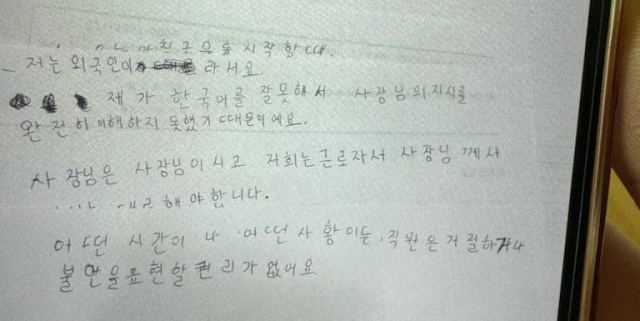 시작할 때.
저는 외국인이 라서요
제가 한국어를 잘못해서 사장님의지시를
완전히 이해하지 못했기 때문이에요.
사장님은 사장님이시고 저희는근로자서 사장님께서
해야합니다.
어떤 시간이나 어떤 상황이든, 직원은거절하거나
불만을표현할 권리가 없어요